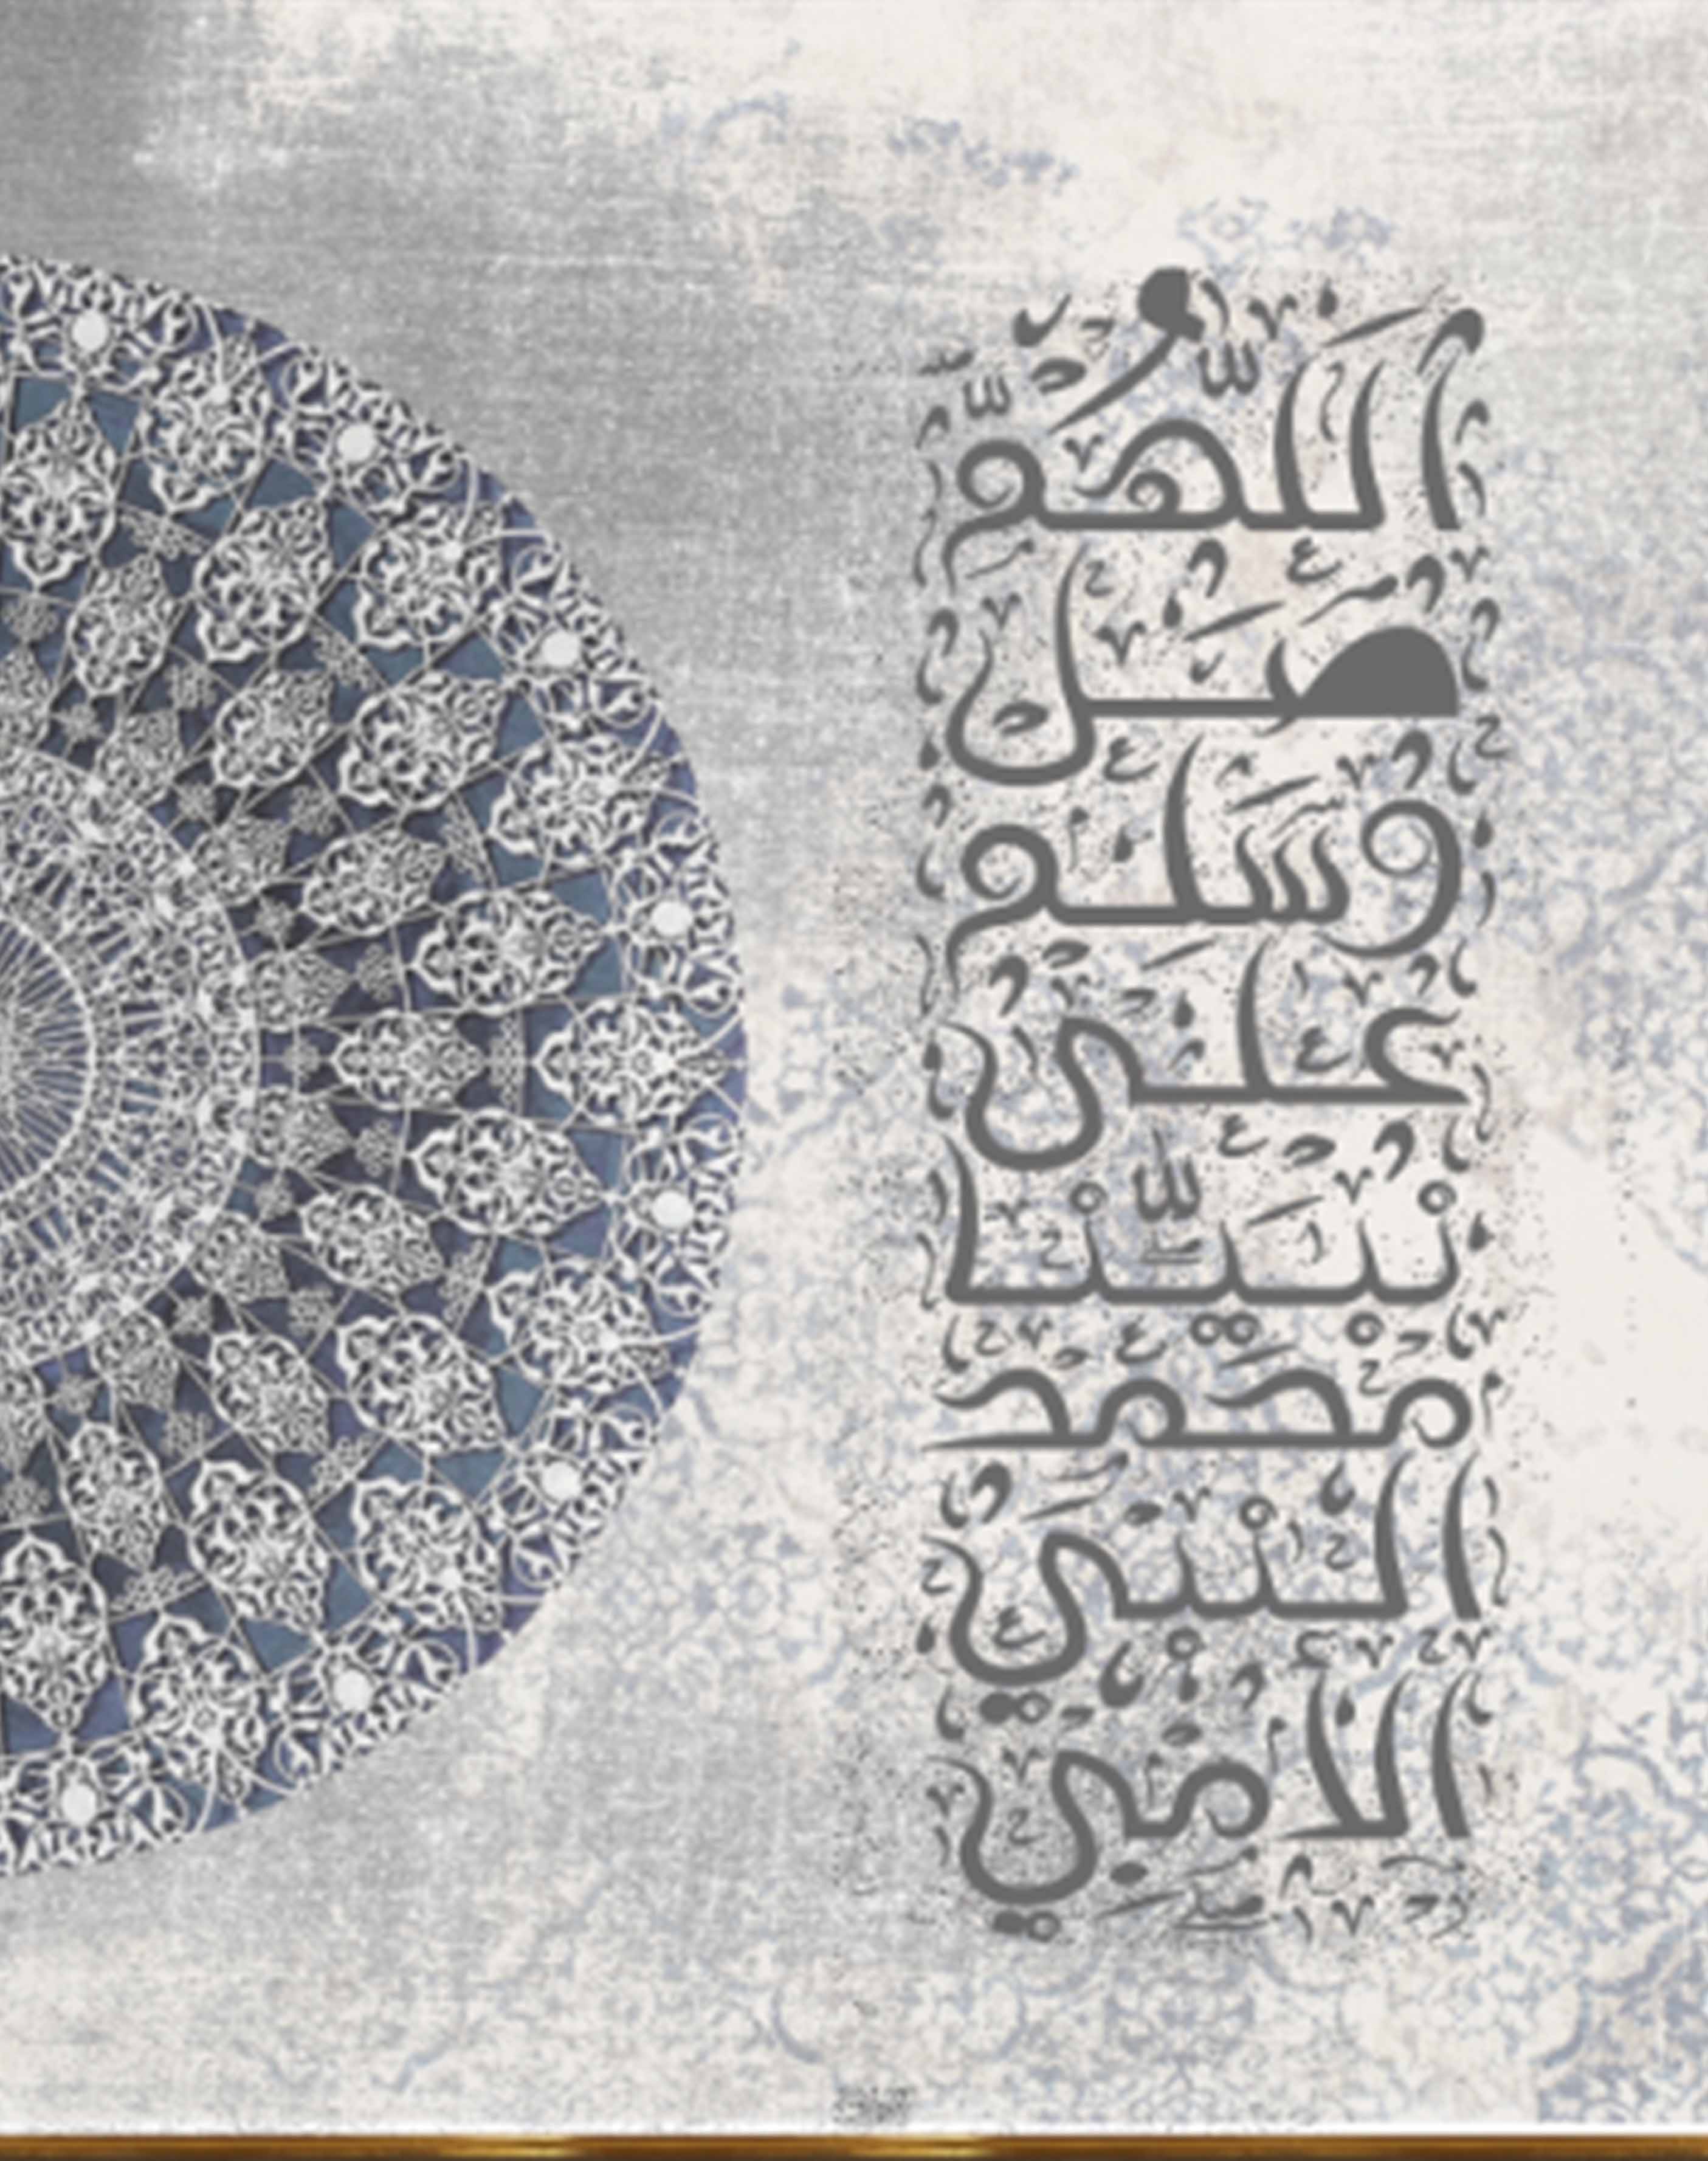 اللهم
صل
وسلم
على
نبينا
محمد
النبي
الأمي